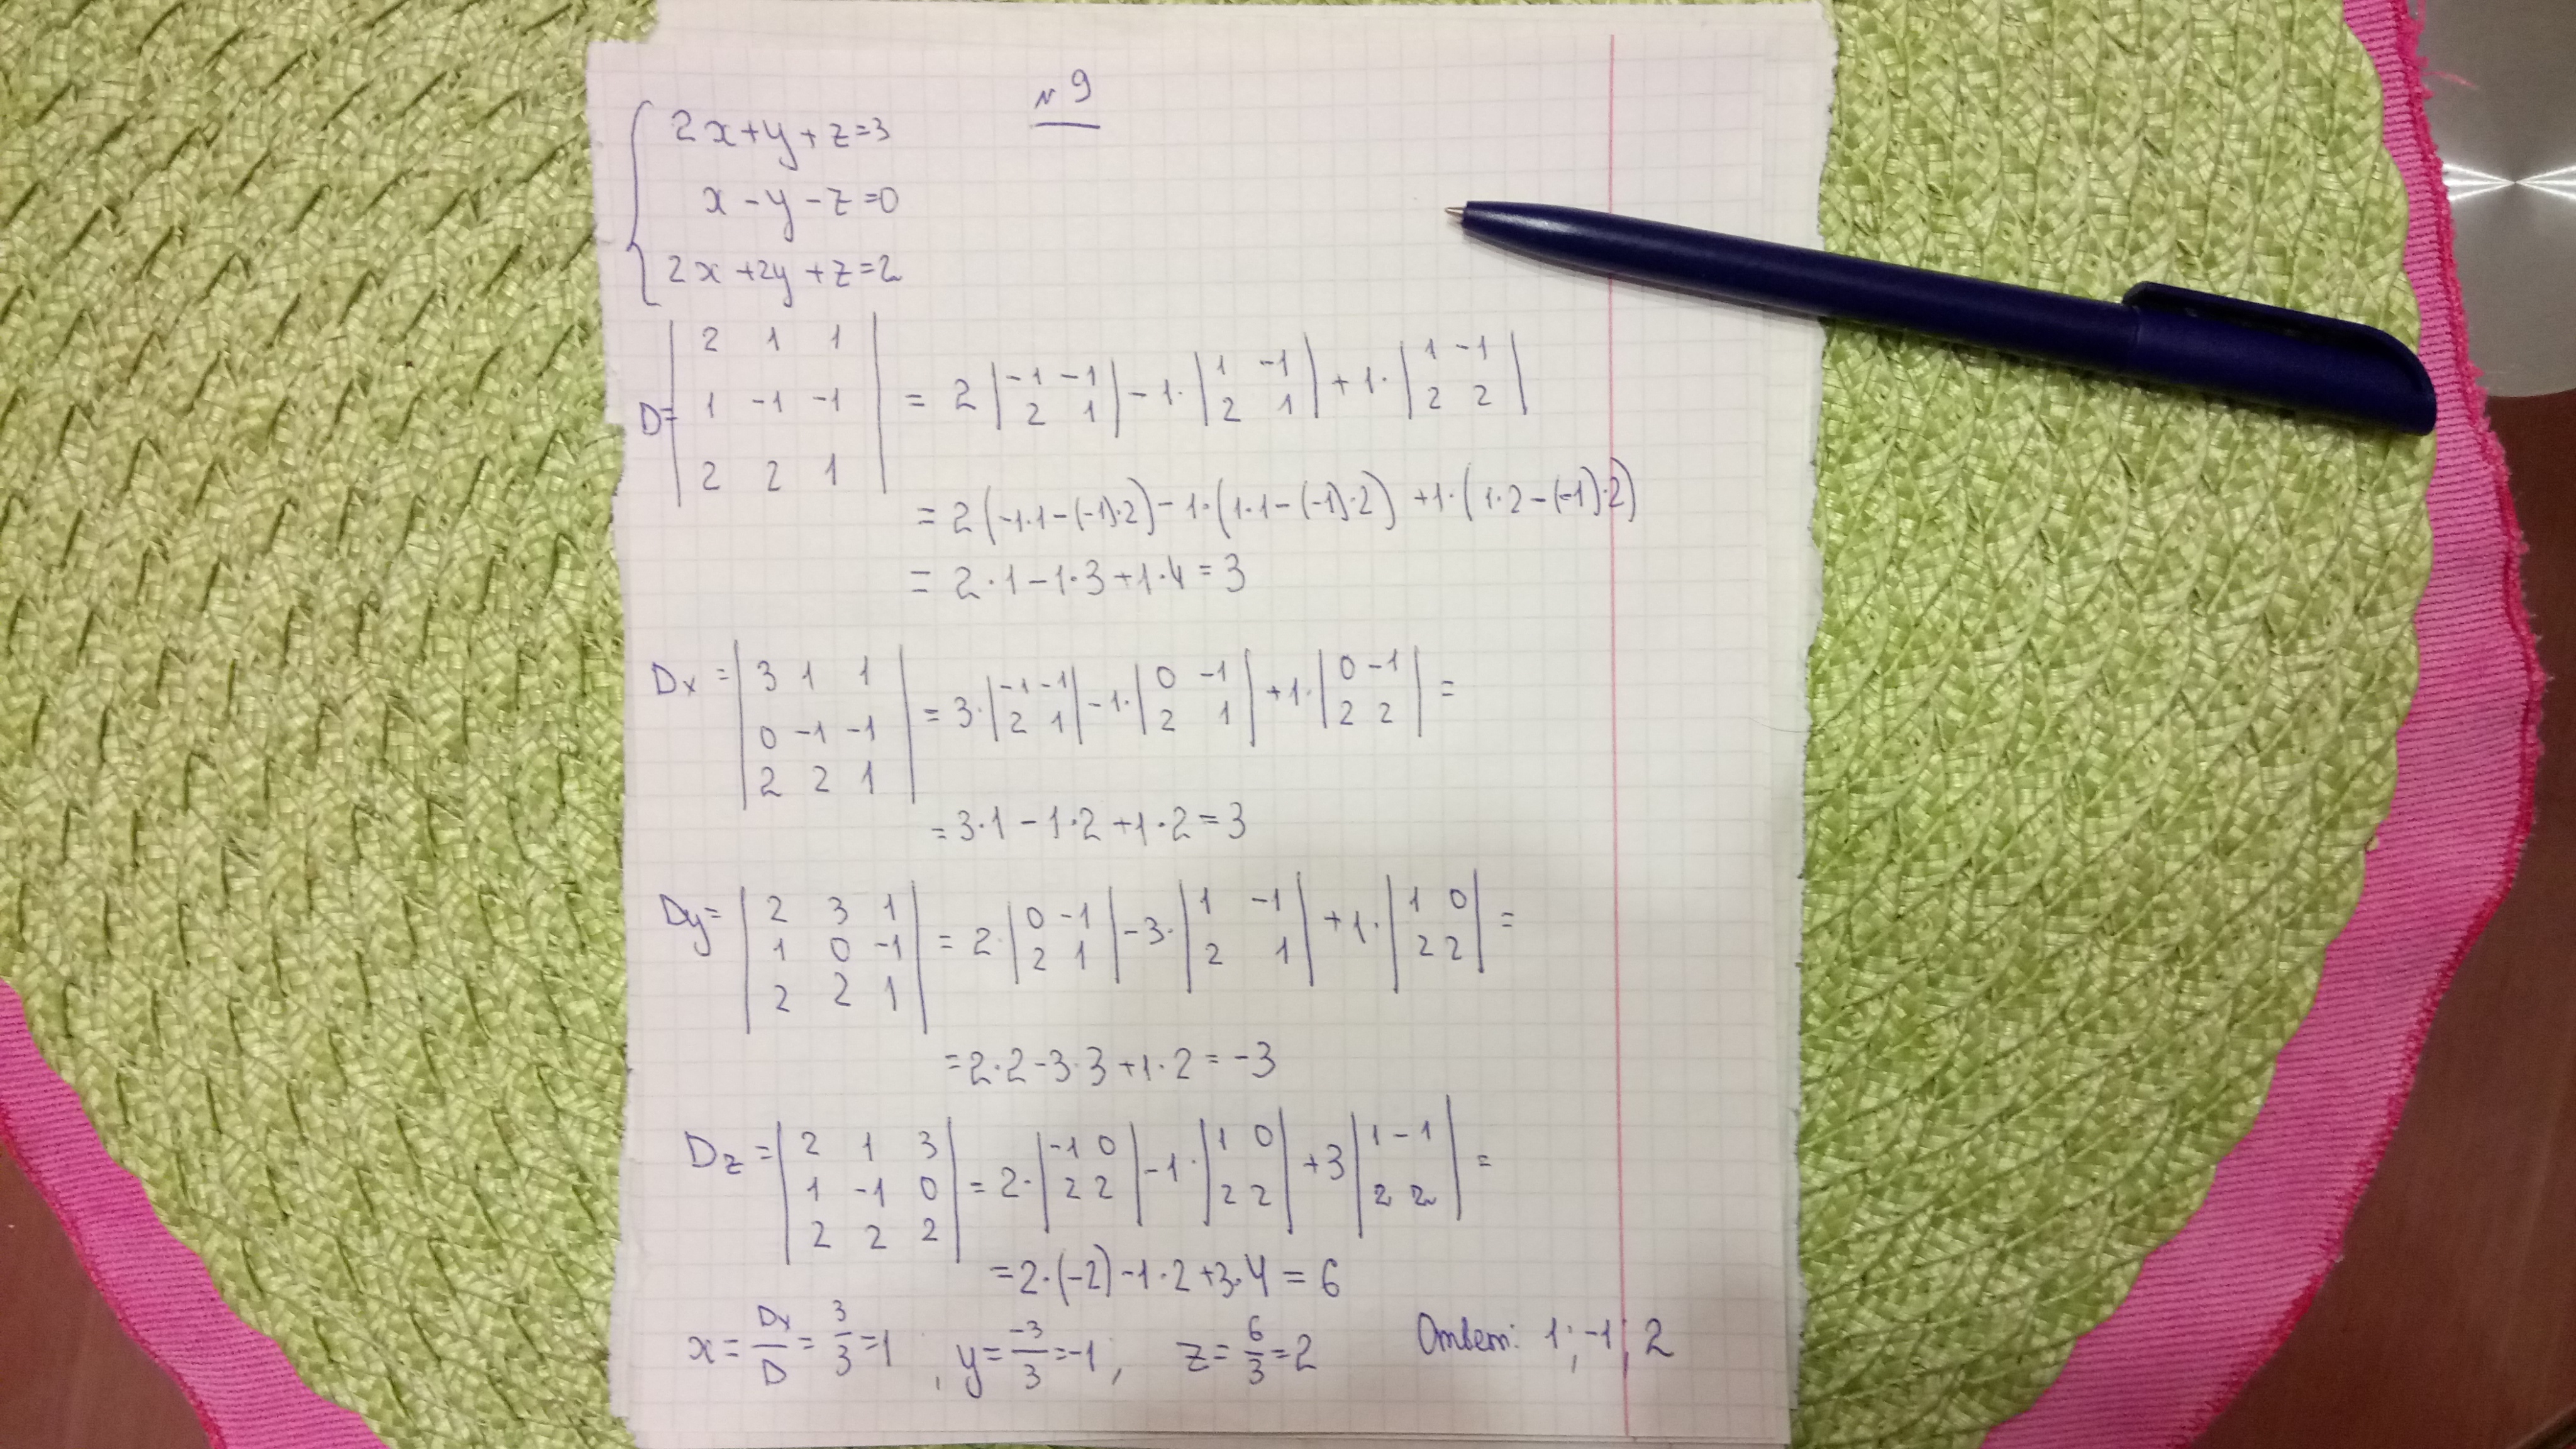 №9
2x+y+z=3
x-y-z=0
2x+2y+z=2
D=|2 1 1; 1 -1 -1; 2 2 1| = 2|-1 -1; 2 1|-1·|1 -1; 2 1|+1·|1 -1; 2 2|
=2(-1·1-(-1)·2)-1·(1·1-(-1)·2)+1·(1·2-(-1)·2)
=2·1-1·3+1·4=3
Dx=|3 1 1; 0 -1 -1; 2 2 1|=3·|-1 -1; 2 1|-1·|0 -1; 2 1|+1·|0 -1; 2 2|=
=3·1-1·2+1·2=3
Dy=|2 3 1; 1 0 -1; 2 2 1|=2·|0 -1; 2 1|-3·|1 -1; 2 1|+1·|1 0; 2 2|=
=2·2-3·3+1·2=-3
Dz=|2 1 3; 1 -1 0; 2 2 2|=2·|-1 0; 2 2|-1·|1 0; 2 2|+3|1 -1; 2 2|=
=2·(-2)-1·2+3·4=6
x=Dx/D=3/3=1, y=-3/3=-1; z=6/3=2 Ответ: 1; -1; 2